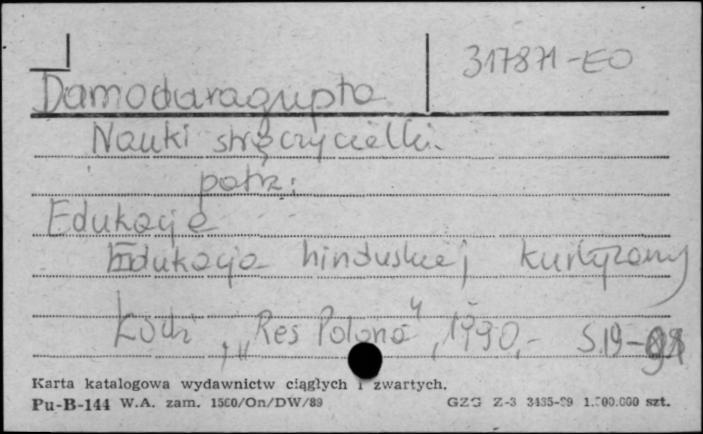 317871-EO
Damodaragupta
Nauki stręczycielki.
patrz:
Edukacje
Edukacja hinduskiej kurtyzany
Łódź, „Res Polona", 1990,- S.19-
Karta katalogowa wydawnictw ciągłych i zwartych.
Pu-B-144 W.A. zam. 1560/On/DW/89 GZG Z-3 3435-89 1.500.000 szt.